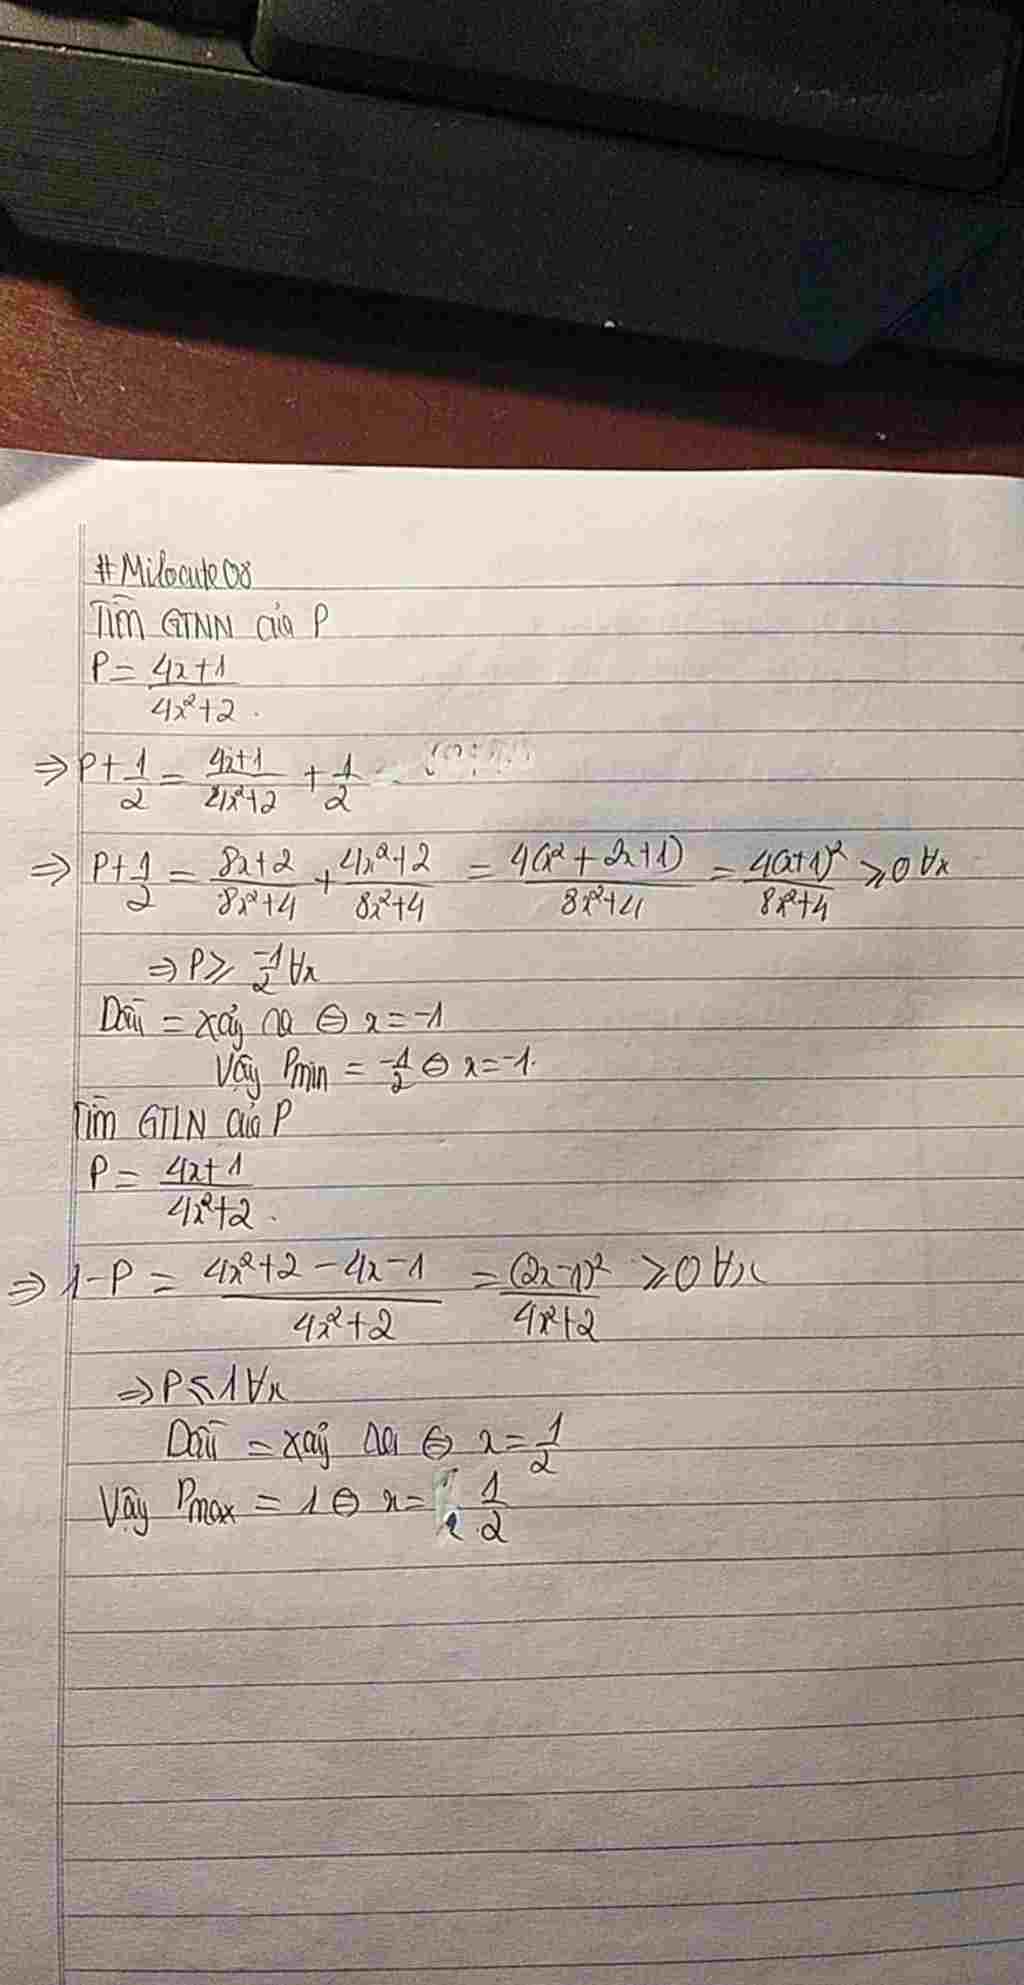 #Milocute08
Tìm GTNN của P
P = (4x+1)/(4x²+2).
⇒ P + 1/2 = (4x+1)/(4x²+2) + 1/2
⇒ P + 1/2 = (8x+2)/(8x²+4) + (4x²+2)/(8x²+4) = 4(x²+2x+1)/(8x²+4) = 4(x+1)²/(8x²+4) ≥ 0 ∀x
⇒ P ≥ -1/2 ∀x
Dấu = xảy ra ⇔ x = -1
Vậy Pmin = -1/2 ⇔ x = -1.
Tìm GTLN của P
P = (4x+1)/(4x²+2).
⇒ 1-P = (4x²+2-4x-1)/(4x²+2) = (2x-1)²/(4x²+2) ≥ 0 ∀x
⇒ P ≤ 1 ∀x
Dấu = xảy ra ⇔ x = 1/2
Vậy Pmax = 1 ⇔ x = 1/2